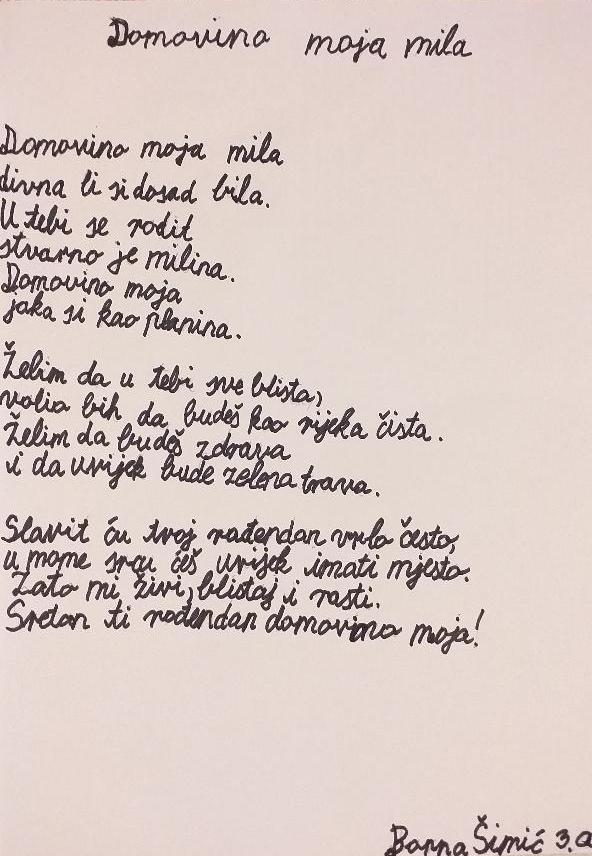 Domovino moja mila
Domovino moja mila
divna li si dosad bila.
U tebi se rodit
stvarno je milina.
Domovino moja
jaka si kao planina.
Želim da u tebi sve blista,
volio bih da budeš kao rijeka čista.
Želim da budeš zdrava
i da uvijek bude zelena trava.
Slavit ću tvoj rođendan vrlo često,
u mome srcu ćeš uvijek imati mjesto.
Zato mi živi, blistaj i rasti.
Sretan ti rođendan domovino moja!
Barna Šimić 3.a